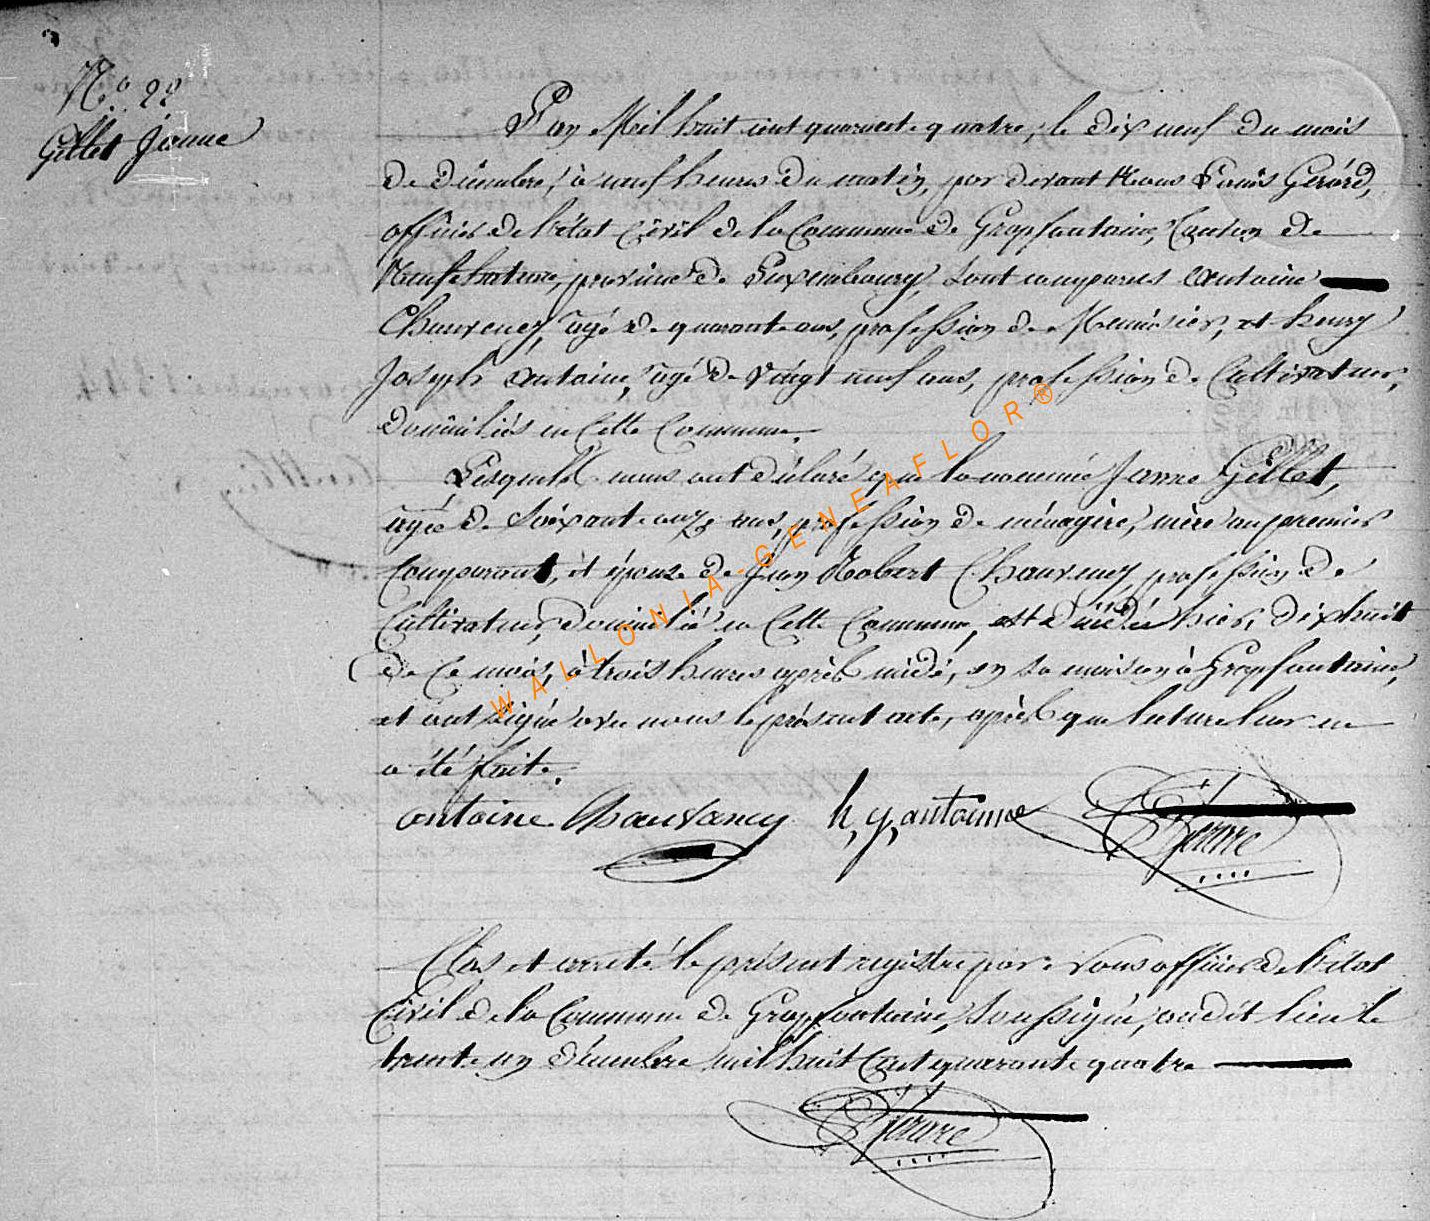 N.° 22
Gillet Jeanne
L'an Mil huit cent quarante quatre, le dix neuf du mois
de décembre, à neuf heures du matin, par devant Nous Louis Gérard,
officier de l'état Civil de la Commune de Grapfontaine, Canton de
Neufchateau, province de Luxembourg, sont comparus Antoine
Chauvency, agé de quarante ans, profession de Menuisier, et henry
Joseph Antoine, agé de vingt neuf ans, profession de Cultivateur,
domiciliés en Cette Commune.
Lesquels nous ont déclaré que la nommée Jeanne Gillet,
agée de soixante onze ans, profession de ménagère, mère au premier
Comparant, et épouse de Jean Robert Chauvency, profession de
Cultivateur, domicilié en Cette Commune, est décédée hier, dix huit
de Ce mois, à trois heures après midi, en sa maison à Grapfontaine,
et ont signé avec nous le présent acte, après que lecture leur en
a été faite.
antoine Chauvancy h, j, antoinne Gérard
Clos et arreté le présent registre par Nous officier de l'état
Civil de la Commune de Grapfontaine, soussigné, audit lieu le
trente un décembre mil huit Cent quarante quatre
Gérard
WALLONIA-GENEAFLOR®